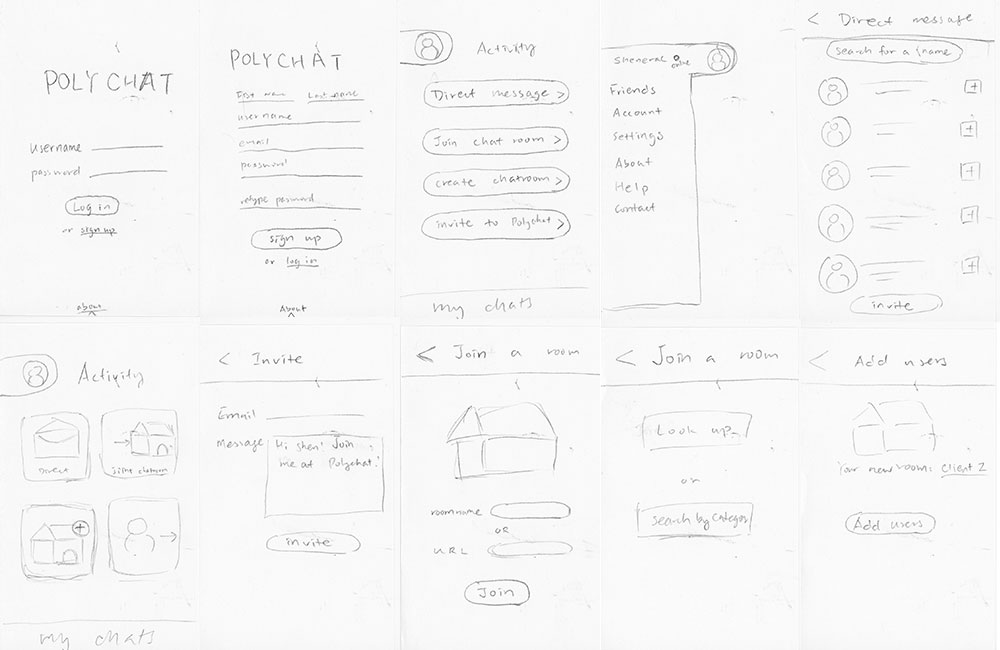 POLYCHAT
username
password
Log in
or sign up
about
POLYCHAT
First nam Last name
username
email
password
retype password
sign up
or log in
About
Activity
Direct message >
Join chat room >
create chatroom >
invite to Polychat >
my chats
sheneral online
Friends
Account
Settings
About
Help
Contact
< Direct message
search for a name
invite
Activity
Direct
my chats
< Invite
Email
message
Hi shen! Join
me at Polychat!
invite
< Join a room
roomname
OR
URL
Join
< Join a room
Look up
or
search by categos
< Add users
Your new room: Client 2
Add users